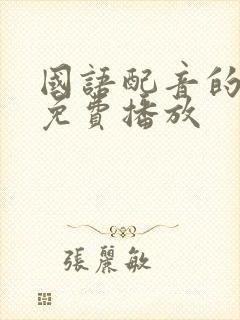 國語配音的
免費播放
張麗敏